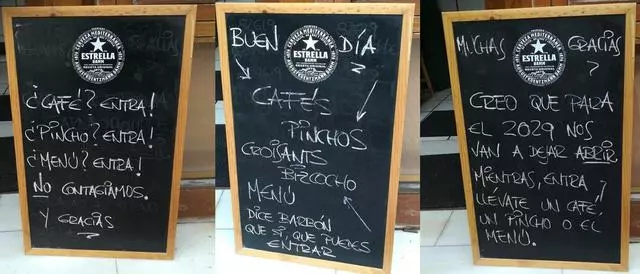 CERVEZA MEDITERRÁNEA
ESTRELLA
DAMM
RECETA ORIGINAL
¿CAFÉ? ENTRA!
¿PINCHO? ENTRA!
¿MENÚ? ENTRA!
NO CONTAGIAMOS.
Y GRACIAS
BUEN DÍA
CERVEZA MEDITERRÁNEA
ESTRELLA
DAMM
RECETA ORIGINAL
CAFÉS
PINCHOS
CROISANTS
BIZCOCHO
MENÚ
DICE BARBÓN
QUE SÍ, QUE PUEDES
ENTRAR
MUCHAS GRACIAS
CERVEZA MEDITERRÁNEA
ESTRELLA
DAMM
RECETA ORIGINAL
CREO QUE PARA
EL 2029 NOS
VAN A DEJAR ABRIR
MIENTRAS, ENTRA Y
LLÉVATE UN CAFÉ,
UN PINCHO O EL
MENÚ.